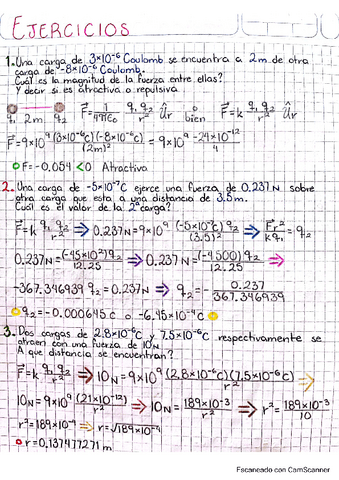 EJERCICIOS
1. Una carga de 3×10⁻⁶ Coulomb se encuentra a 2m de otra
carga de -8×10⁻⁶ Coulomb.
Cuál es la magnitud de la fuerza entre ellas?
Y decir si es atractiva o repulsiva.
q₁ 2m q₂ F⃗ = 1/4π€o q₁ q₂/r² Ûr o bien F⃗ = k q₁ q₂/r² Ûr
F⃗ = 9×10⁹ (3×10⁻⁶c)(-8×10⁻⁶c)/(2m)² = 9×10⁹ -24×10⁻¹²/4
F = -0.054 < 0 Atractiva
2. Una carga de -5×10⁻⁷C ejerce una fuerza de 0.237 N sobre
otra carga que esta a una distancia de 3.5m.
Cuál es el valor de la 2ª carga?
F⃗ = k q₁ q₂/r² ⇒ 0.237N = 9×10⁹ (-5×10⁻⁷c) q₂/(3.5)² ⇒ F⃗r²/kq₁ = q₂
0.237N = (-45×10²)q₂/12.25 ⇒ 0.237N = (-4500) q₂/12.25 ⇒
-367.346939 q₂ = 0.237N ⇒ q₂ = - 0.237/367.346939
q₂ = -0.000645 c o -6.45×10⁻⁴c
3. Dos cargas de 2.8×10⁻⁶c y 7.5×10⁻⁶c respectivamente se
atraen con una fuerza de 10N
A que distancia se encuentran?
F⃗ = k q₁ q₂/r² ⇒ 10N = 9×10⁹ (2.8×10⁻⁶c)(7.5×10⁻⁶c)/r² ⇒
10N = 9×10⁹ (21×10⁻¹²)/r² ⇒ 10N = 189×10⁻³/r² ⇒ r² = 189×10⁻³/10
r² = 189×10⁻⁴ ⇒ r = √189×10⁻⁴
r = 0.137477271 m
Escaneado con CamScanner